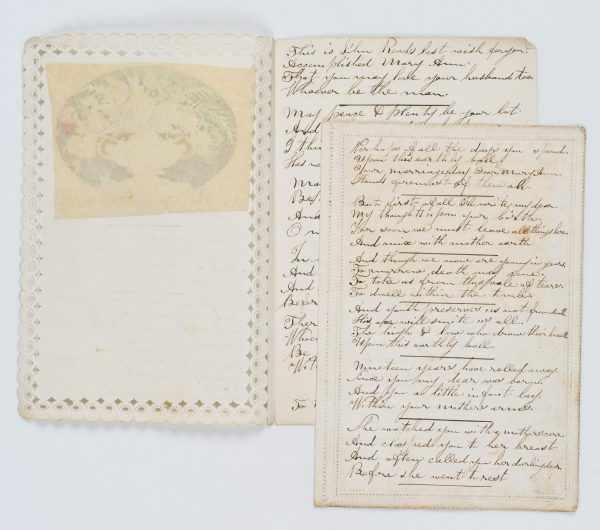 This is John Reads best wish for you.
Accomplished Mary Ann.
That you may like your husband too
Whoever be the man.
May peace & plenty be your lot
And
I thin
Has
Ma
Bef
And
O m
In
And
And
Before
Ther
When
Be
Wit
To
Perhaps of all the days you spend
Upon this earthly ball,
Your marriage day Dear Mary Ann
Stands foremost of them all.
But first of all I'll write my dear
My thoughts upon your birth,
For soon we must leave all things here
And mix with mother earth
And though we now are young in years
To morrow death may come,
To take us from this vale of tears
To dwell within the tomb.
And youth preserves us not from death
will smite us all.
The high & low who draw their breath
Upon this earthly ball.
Nineteen years have rolled away
Since you my dear was born.
And you a little infant lay
Within your mothers arms.
She watched you with a mothers care
And clasped you to her breast
And often called you her darling dear
Before she went to rest